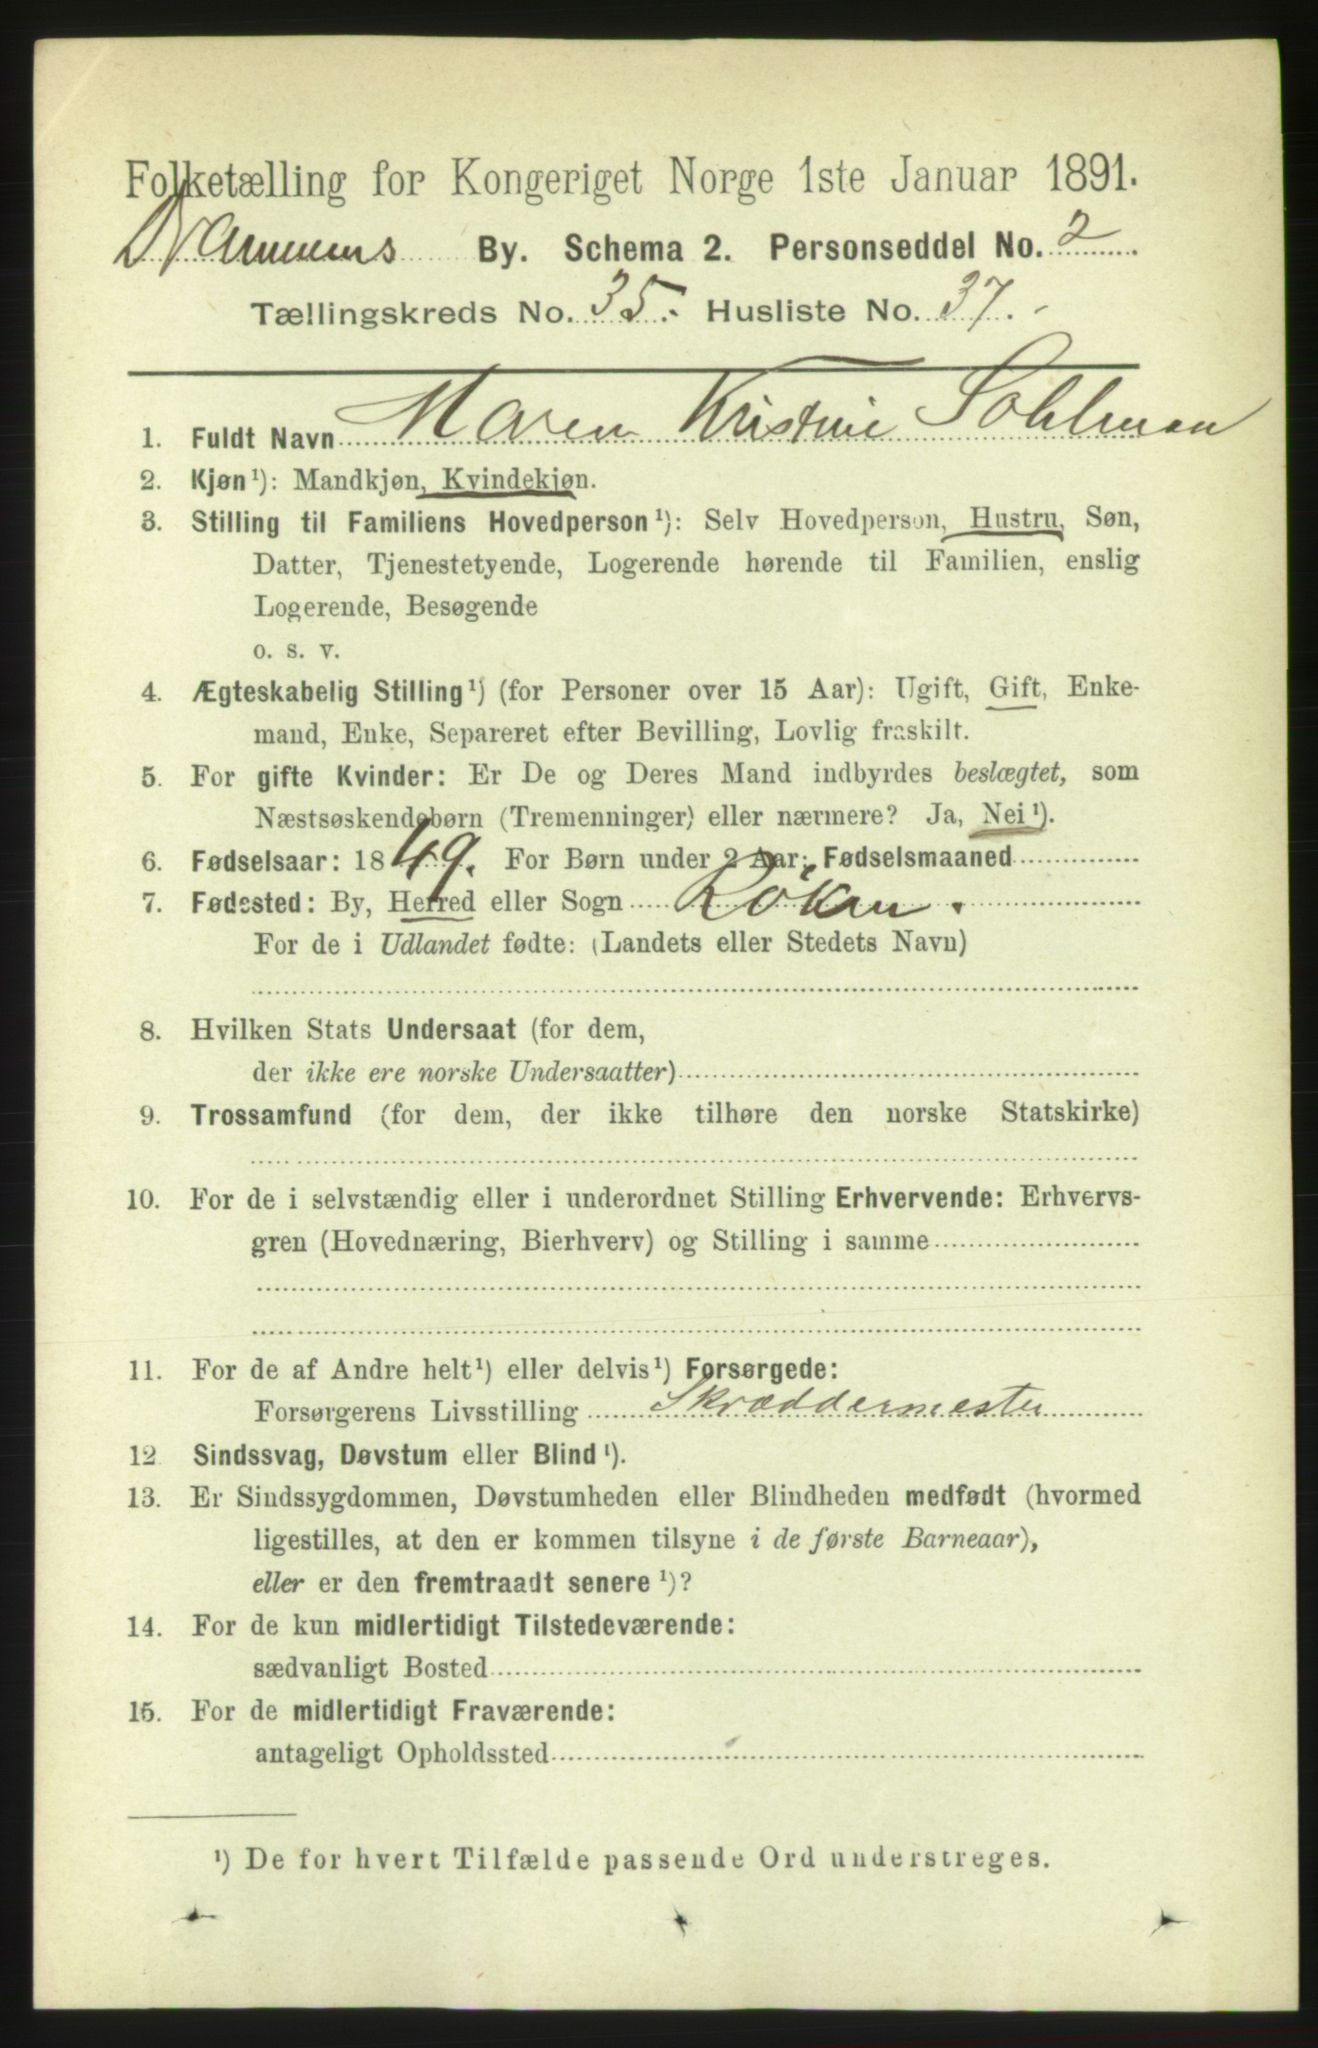 Folketælling for Kongeriget Norge 1ste Januar 1891.
Drammens By. Schema 2. Personseddel No. 2
Tællingskreds No. 35. Husliste No. 37.
1. Fuldt Navn Maren Kristine Sohlman
2. Kjøn¹): Mandkjøn, Kvindekjøn.
3. Stilling til Familiens Hovedperson¹): Selv Hovedperson, Hustru, Søn,
Datter, Tjenestetyende, Logerende hørende til Familien, enslig
Logerende, Besøgende
o. s. v.
4. Ægteskabelig Stilling¹) (for Personer over 15 Aar): Ugift, Gift, Enke-
mand, Enke, Separeret efter Bevilling, Lovlig fraskilt.
5. For gifte Kvinder: Er De og Deres Mand indbyrdes beslægtet, som
Næstsøskendebørn (Tremenninger) eller nærmere? Ja, Nei¹).
6. Fødselsaar: 1849. For Børn under 2 Aar: Fødselsmaaned
7. Fødested: By, Herred eller Sogn Röken.
For de i Udlandet fødte: (Landets eller Stedets Navn)
8. Hvilken Stats Undersaat (for dem,
der ikke ere norske Undersaatter)
9. Trossamfund (for dem, der ikke tilhøre den norske Statskirke)
10. For de i selvstændig eller i underordnet Stilling Erhvervende: Erhvervs-
gren (Hovednæring, Bierhverv) og Stilling i samme
11. For de af Andre helt¹) eller delvis¹) Forsørgede:
Forsørgerens Livsstilling Skræddermester
12 Sindssvag, Døvstum eller Blind¹).
13. Er Sindssygdommen, Døvstumheden eller Blindheden medfødt (hvormed
ligestilles, at den er kommen tilsyne i de første Barneaar),
eller er den fremtraadt senere¹)?
14. For de kun midlertidigt Tilstedeværende:
sædvanligt Bosted
15. For de midlertidigt Fraværende:
antageligt Opholdssted
¹) De for hvert Tilfælde passende Ord understreges.